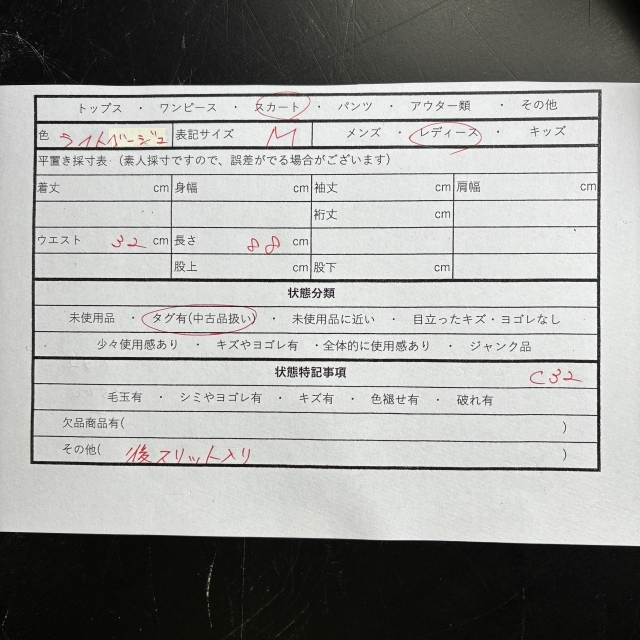 トップス ・ ワンピース ・ スカート ・ パンツ ・ アウター類 ・ その他
色 ライトベージュ 表記サイズ M メンズ ・ レディース ・ キッズ
平置き採寸表 (素人採寸ですので、誤差がでる場合がございます)
着丈 cm 身幅 cm 袖丈 cm 肩幅 cm
裄丈 cm
ウエスト 32 cm 長さ 88 cm
股上 cm 股下 cm
状態分類
未使用品 ・ タグ有(中古品扱い) ・ 未使用品に近い ・ 目立ったキズ・ヨゴレなし
少々使用感あり ・ キズやヨゴレ有 ・全体的に使用感あり ・ ジャンク品
状態特記事項 C32
毛玉有 ・ シミやヨゴレ有 ・ キズ有 ・ 色褪せ有 ・ 破れ有
欠品商品有( )
その他( 後スリット入り )